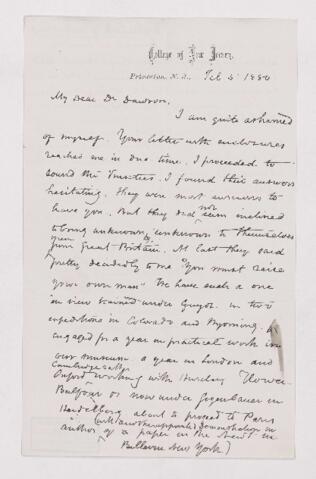 College of New Jersey,
Princeton, N. J., Feb 5 1880
My Dear Dr Dawson.
I am quite ashamed
of myself. Your letter with enclosures
reached me in due time. I proceeded to
sound the Trustees. I found their answers
hesitating. They were most anxious to
have you. But they did not seem inclined
to bring unknown, unknown to themselves
from Great Britain. At last they said
pretty decidedly to me "You must raise
your own man" We have such a one
in view trained under Guyot. in two
expeditions in Colorado and Wyoming.
engaged for a year in practical work in
our museum. a year in London and
Cambridge
Oxford working with Huxley Flower
Balfour & now under Gegenbauer in
Heidelberg about to proceed to Paris
(with another appointed demonstrator in
author of a paper in the
Bellevue New York)